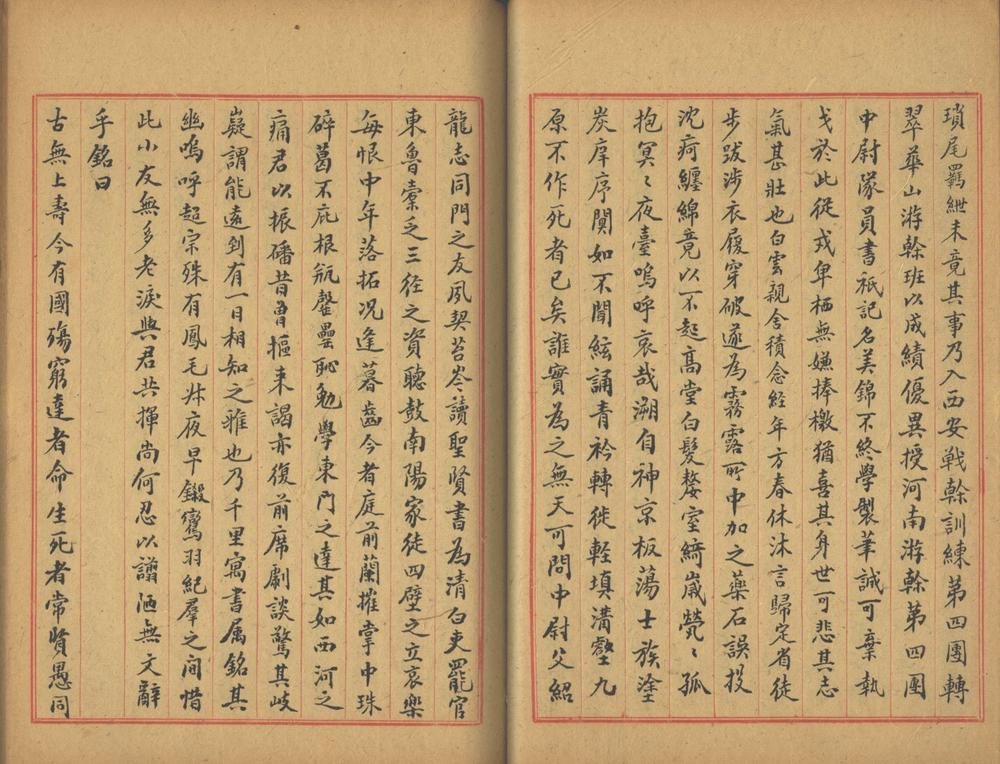 瑣尾羈紲未竟其事乃入西安戰幹訓練第四團轉
翠華山游幹班以成績優異授河南游幹第四團
中尉隊員書祇記名美錦不終學製筆誠可棄執
戈於此從戎卑栖無嫌捧檄猶喜其身世可悲其志
氣甚壯也白雲親舍積念經年方春休沐言歸定省徒
步跋涉衣履穿破遂為霧露所中加之藥石誤投
沈疴纏綿竟以不起高堂白髮嫠室綺歲煢〻孤
抱冥〻夜臺嗚呼哀哉溯自神京板蕩士族塗
炭庠序闃如不聞絃誦青衿轉徙輕填溝壑九
原不作死者已矣誰實為之無天可問中尉父紹
龍志同門之友夙契苔岑讀聖賢書為清白吏罷官
東魯橐乏三徑之資聽鼓南陽家徒四壁之立哀樂
每恨中年落拓况逢暮齒今者庭前蘭摧掌中珠
碎葛不庇根缾罄罍恥勉學東門之達其如西河之
痛君以振磻昔曾摳来謁亦復前席劇談驚其岐
嶷謂能遠到有一日相知之雅也乃千里寓書属銘其
幽嗚呼超宗殊有鳳毛叔夜早鍛鸞羽紀羣之間惜
此小友無多老淚與君共揮尚何忍以譾洒無文辭
乎銘曰
古無上壽今有國殤窮達者命生死者常賢愚同